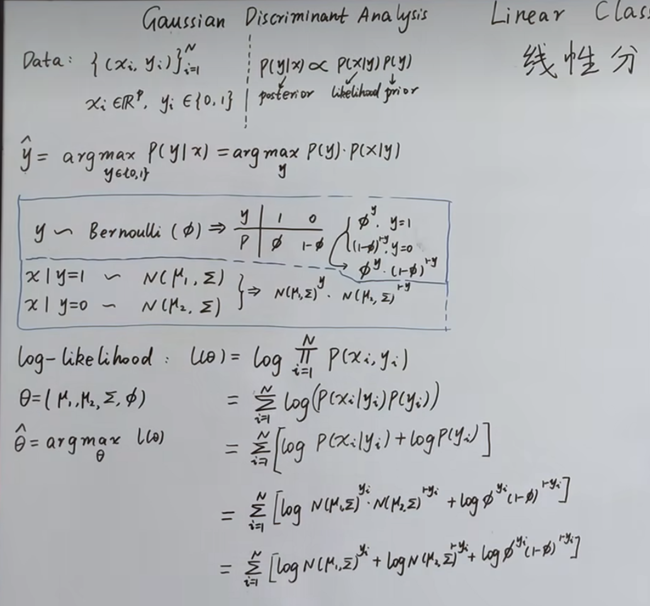 Gaussian Discriminant Analysis
Linear Clas
线性分
Data: {(xᵢ, yᵢ)}ᵢ₌₁ᴺ
xᵢ ∈ ℝᵖ, yᵢ ∈ {0,1}
P(y|x) ∝ P(x|y) P(y)
posterior likelihood prior
ŷ = argmax_{y∈{0,1}} P(y|x) = argmax_y P(y)·P(x|y)
y ∽ Bernoulli (ϕ) ⇒
y | 1 0
P | ϕ 1-ϕ
ϕ^y. y=1
(1-ϕ)^{1-y}. y=0
→ ϕ^y·(1-ϕ)^{1-y}
x|y=1 ∽ N(μ₁, Σ)
x|y=0 ∽ N(μ₂, Σ)
⇒ N(μ₁,Σ)^y · N(μ₂,Σ)^{1-y}
log-likelihood: l(θ) = log ∏_{i=1}^N P(xᵢ, yᵢ)
θ=(μ₁,μ₂,Σ,ϕ) = ∑_{i=1}^N log(P(xᵢ|yᵢ)P(yᵢ))
θ̂ = argmax_θ l(θ) = ∑_{i=1}^N [log P(xᵢ|yᵢ) + log P(yᵢ)]
= ∑_{i=1}^N [log N(μ₁,Σ)^{yᵢ}·N(μ₂,Σ)^{1-yᵢ} + log ϕ^{yᵢ}(1-ϕ)^{1-yᵢ}]
= ∑_{i=1}^N [log N(μ₁,Σ)^{yᵢ} + log N(μ₂,Σ)^{1-yᵢ} + log ϕ^{yᵢ}(1-ϕ)^{1-yᵢ}]